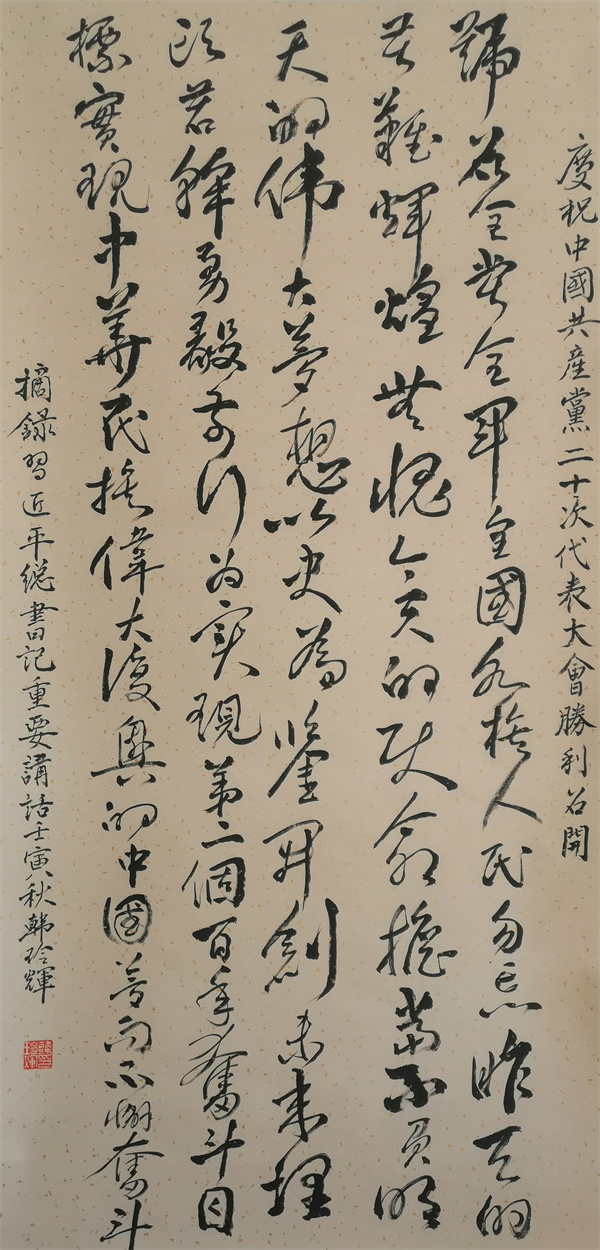 慶祝中國共産黨二十次代表大會勝利召開
號召全黨全軍全國各族人民勿忘昨天的
苦難輝煌無愧今天的使命擔當不負明
天的伟大夢想以史為鑒開創未来埋
头苦幹勇毅前行为实現第二個百年奮斗目
標實現中華民族偉大復興的中國夢而不懈奮斗
摘録習近平総書記重要講話壬寅秋韩玲輝